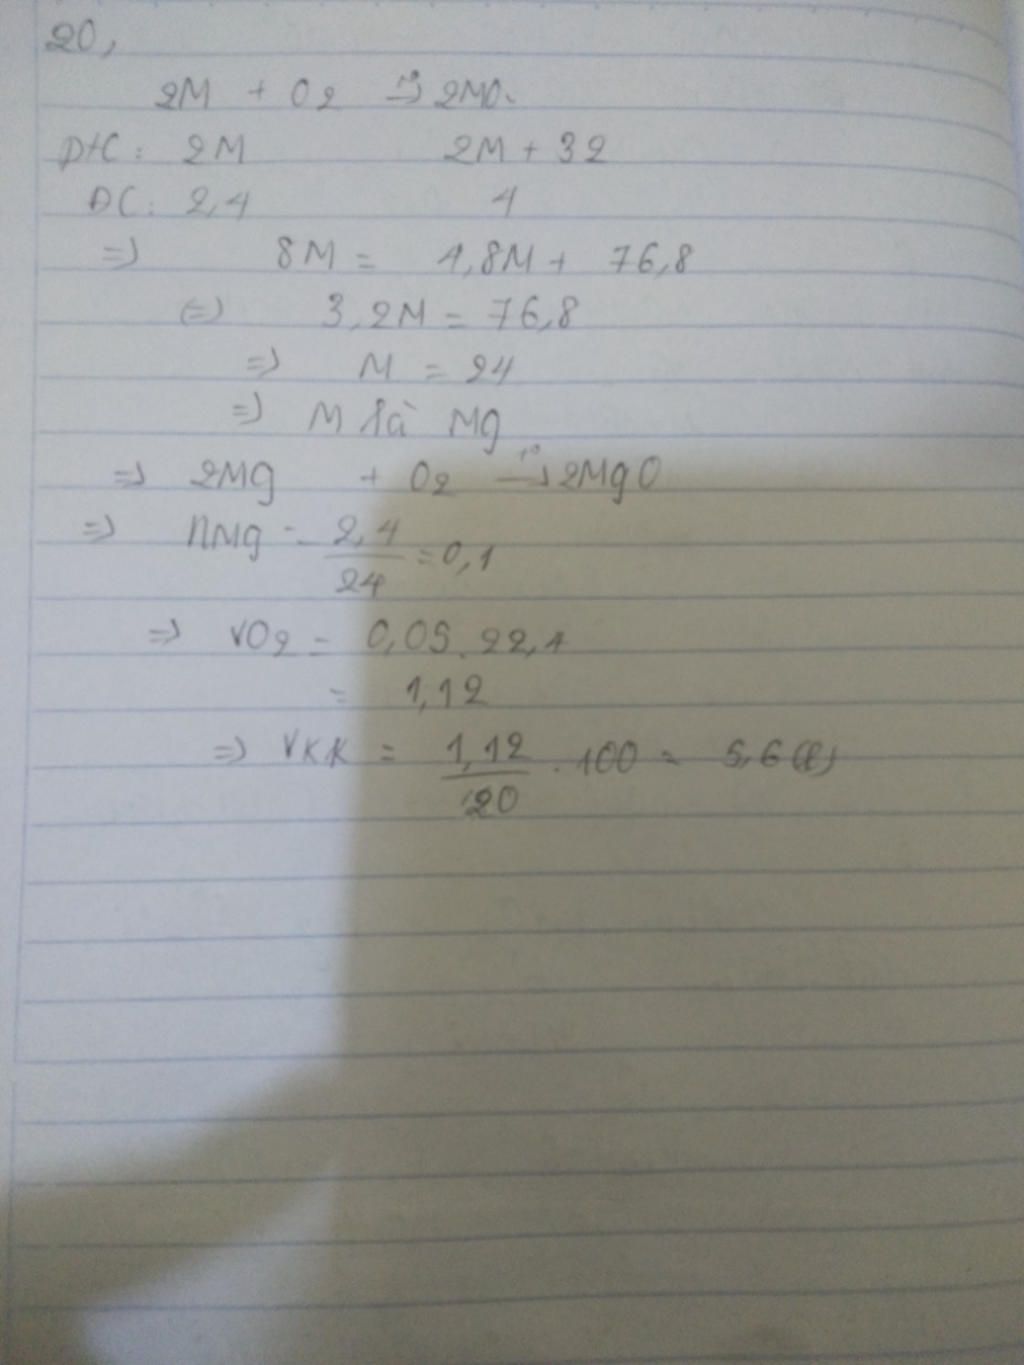 20,
2M + O2 →t° 2MO.
PTC: 2M 2M + 32
ĐC: 2,4 4
=> 8M = 4,8M + 76,8
(=) 3,2M = 76,8
=> M = 24
=> M là Mg
=> 2Mg + O2 →t° 2MgO
=> nMg = 2,4/24 = 0,1
=> VO2 = 0,05.22,4
= 1,12
=> VKK = 1,12/20 . 100 = 5,6 (l)